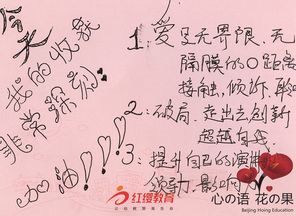 今天
我的收获
非常深刻
加油!!!
1: 爱是无界限, 无
隔膜的0距离
接触, 倾诉, 聆
2: 破局、走出去创新
超越自
3: 提升自己的演
领导, 影响力
红缨教育
心の语 花の果
Beijing Hoing Education